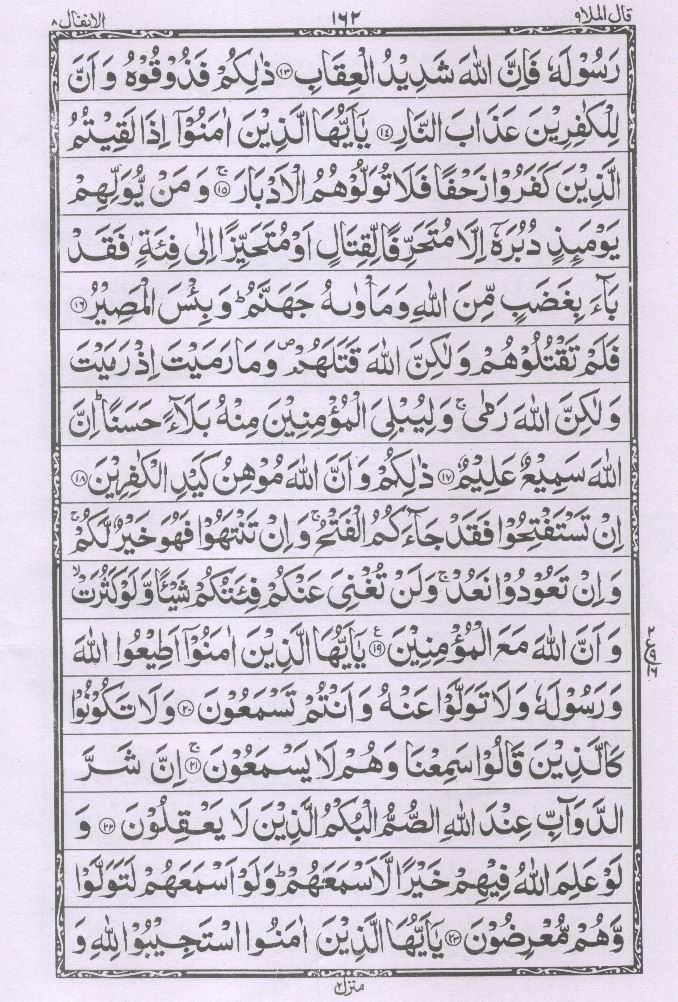 قال الملا۹ ۱۶۲ الانفال۸
رَسُوۡلَهٗ فَاِنَّ اللّٰهَ شَدِيۡدُ الۡعِقَابِ ﴿۱۳﴾ ذٰلِكُمۡ فَذُوۡقُوۡهُ وَ اَنَّ
لِلۡكٰفِرِيۡنَ عَذَابَ النَّارِ ﴿۱۴﴾ يٰۤاَيُّهَا الَّذِيۡنَ اٰمَنُوۡۤا اِذَا لَقِيۡتُمُ
الَّذِيۡنَ كَفَرُوۡا زَحۡفًا فَلَا تُوَلُّوۡهُمُ الۡاَدۡبَارَ ﴿۱۵﴾ۚ وَ مَنۡ يُّوَلِّهِمۡ
يَوۡمَئِذٍ دُبُرَهٗۤ اِلَّا مُتَحَرِّفًا لِّقِتَالٍ اَوۡ مُتَحَيِّزًا اِلٰى فِئَةٍ فَقَدۡ
بَآءَ بِغَضَبٍ مِّنَ اللّٰهِ وَ مَاۡوٰٮهُ جَهَنَّمُ ؕ وَ بِئۡسَ الۡمَصِيۡرُ ﴿۱۶﴾
فَلَمۡ تَقۡتُلُوۡهُمۡ وَ لٰكِنَّ اللّٰهَ قَتَلَهُمۡ ۪ وَ مَا رَمَيۡتَ اِذۡ رَمَيۡتَ
وَ لٰكِنَّ اللّٰهَ رَمٰى ۚ وَ لِيُبۡلِىَ الۡمُؤۡمِنِيۡنَ مِنۡهُ بَلَآءً حَسَنًا ؕ اِنَّ
اللّٰهَ سَمِيۡعٌ عَلِيۡمٌ ﴿۱۷﴾ ذٰلِكُمۡ وَ اَنَّ اللّٰهَ مُوۡهِنُ كَيۡدِ الۡكٰفِرِيۡنَ ﴿۱۸﴾
اِنۡ تَسۡتَفۡتِحُوۡا فَقَدۡ جَآءَكُمُ الۡفَتۡحُ ۚ وَ اِنۡ تَنۡتَهُوۡا فَهُوَ خَيۡرٌ لَّكُمۡ ۚ
وَ اِنۡ تَعُوۡدُوۡا نَعُدۡ ۚ وَ لَنۡ تُغۡنِىَ عَنۡكُمۡ فِئَتُكُمۡ شَيۡـًٔا وَّ لَوۡ كَثُرَتۡ ۙ
وَ اَنَّ اللّٰهَ مَعَ الۡمُؤۡمِنِيۡنَ ﴿۱۹﴾ ع يٰۤاَيُّهَا الَّذِيۡنَ اٰمَنُوۡۤا اَطِيۡعُوا اللّٰهَ
وَ رَسُوۡلَهٗ وَ لَا تَوَلَّوۡا عَنۡهُ وَ اَنۡتُمۡ تَسۡمَعُوۡنَ ﴿۲۰﴾ وَ لَا تَكُوۡنُوۡا
كَالَّذِيۡنَ قَالُوۡا سَمِعۡنَا وَ هُمۡ لَا يَسۡمَعُوۡنَ ﴿۲۱﴾ۚ اِنَّ شَرَّ
الدَّوَآبِّ عِنۡدَ اللّٰهِ الصُّمُّ الۡبُكۡمُ الَّذِيۡنَ لَا يَعۡقِلُوۡنَ ﴿۲۲﴾ وَ
لَوۡ عَلِمَ اللّٰهُ فِيۡهِمۡ خَيۡرًا لَّاَسۡمَعَهُمۡ ؕ وَ لَوۡ اَسۡمَعَهُمۡ لَتَوَلَّوۡا
وَّ هُمۡ مُّعۡرِضُوۡنَ ﴿۲۳﴾ يٰۤاَيُّهَا الَّذِيۡنَ اٰمَنُوا اسۡتَجِيۡبُوۡا لِلّٰهِ وَ
منزل۲